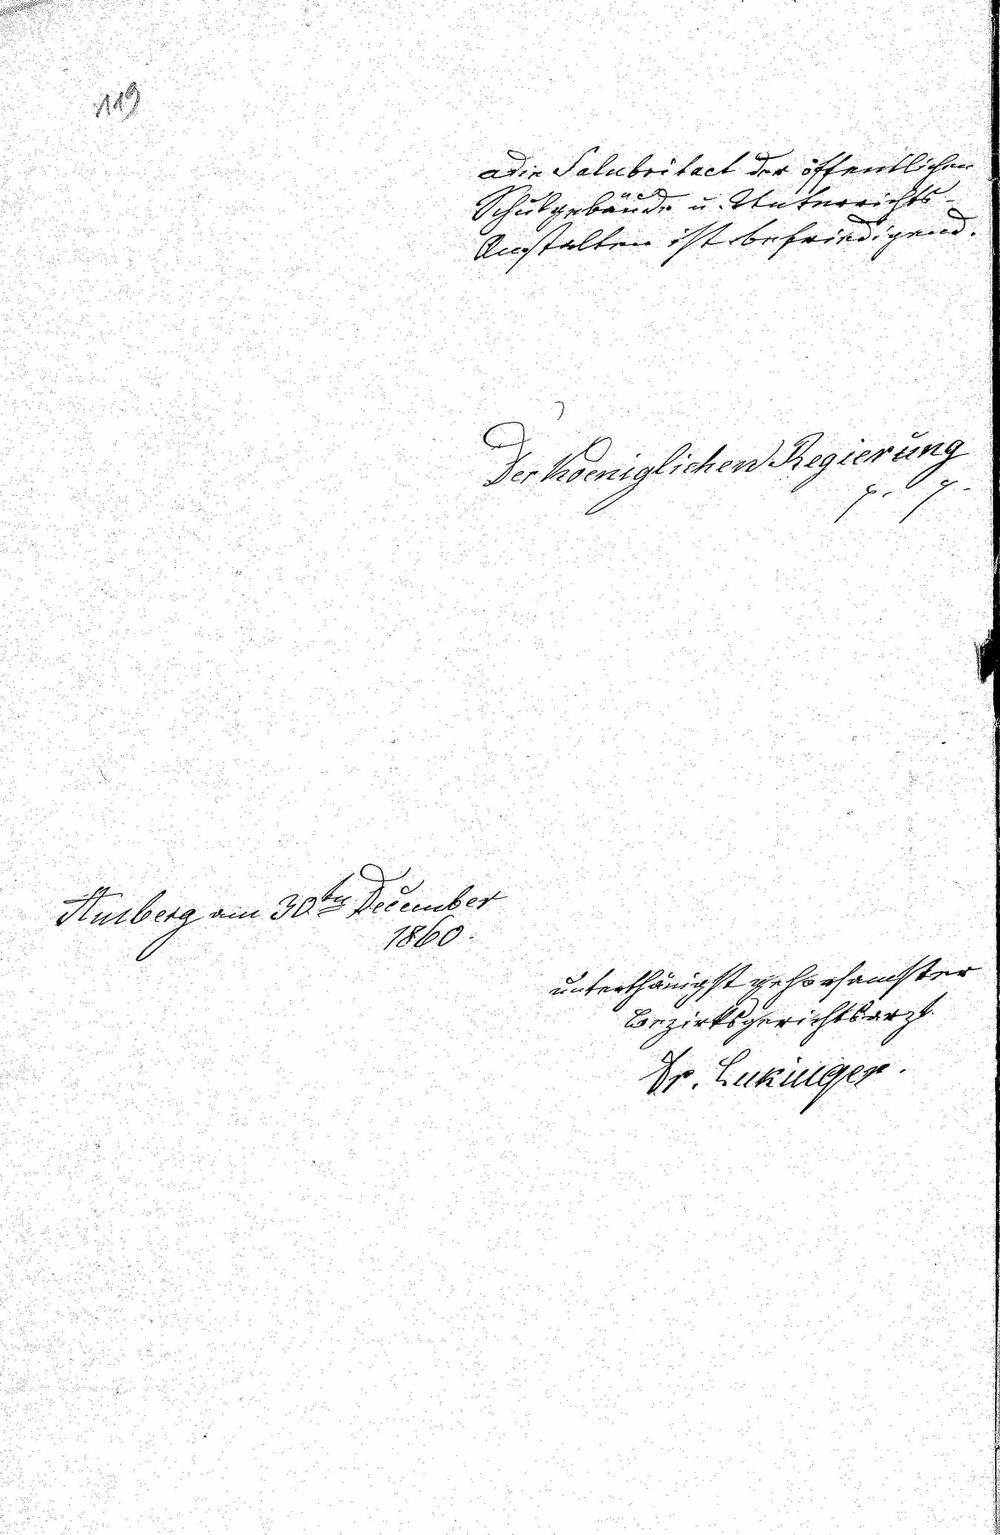 119
Die Salubritaet der öffentlichen
Schulgebäude u. Unterrichts-
Anstalten ist befriedigend.
Der Koeniglichen Regierung
Amberg am 30ten December
1860.
unterthänigst gehorsamster
Bezirksgerichtsarzt
Dr. Lukinger.